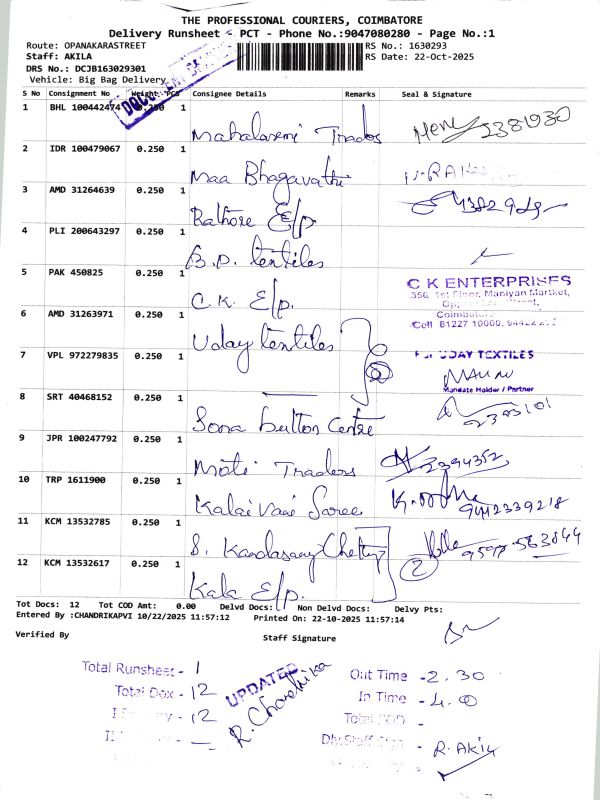 THE PROFESSIONAL COURIERS, COIMBATORE
Delivery Runsheet - PCT - Phone No.:9047080280 - Page No.:1
Route: OPANAKARASTREET
RS No.: 1630293
Staff: AKILA
RS Date: 22-Oct-2025
DRS No.: DCJB163029301
Vehicle: Big Bag Delivery
DOCUMENT
S No Consignment No Weight PCS Consignee Details Remarks Seal & Signature
1 BHL 100442474 0.250 1
Mahalaxmi Trades
2 IDR 100479067 0.250 1
Maa Bhagavathi
3 AMD 31264639 0.250 1
Rathore E/p
4 PLI 200643297 0.250 1
B.P. textiles
5 PAK 450825 0.250 1
C.K. E/p.
C K ENTERPRISES
356, 1st Floor, Maniyan Market,
Street,
Coimbatore
Cell 81227 10000,
6 AMD 31263971 0.250 1
Uday textiles
7 VPL 972279835 0.250 1
UDAY TEXTILES
Mandate Holder / Partner
8 SRT 40468152 0.250 1
Sona button Centre
9 JPR 100247792 0.250 1
Moti Traders
2394352
10 TRP 1611900 0.250 1
Kalai Vani Saree
9442339218
11 KCM 13532785 0.250 1
S. Kandasamy Chetty
2
12 KCM 13532617 0.250 1
Kala E/p.
Tot Docs: 12 Tot COD Amt: 0.00 Delvd Docs: Non Delvd Docs: Delvy Pts:
Entered By :CHANDRIKAPVI 10/22/2025 11:57:12 Printed On: 22-10-2025 11:57:14
Verified By Staff Signature
Total Runsheet - 1
Total Dox - 12
- 12
UPDATED
Out Time - 2.30
In Time - 4.00
Total COD -
Dly.Staff - R. Akila